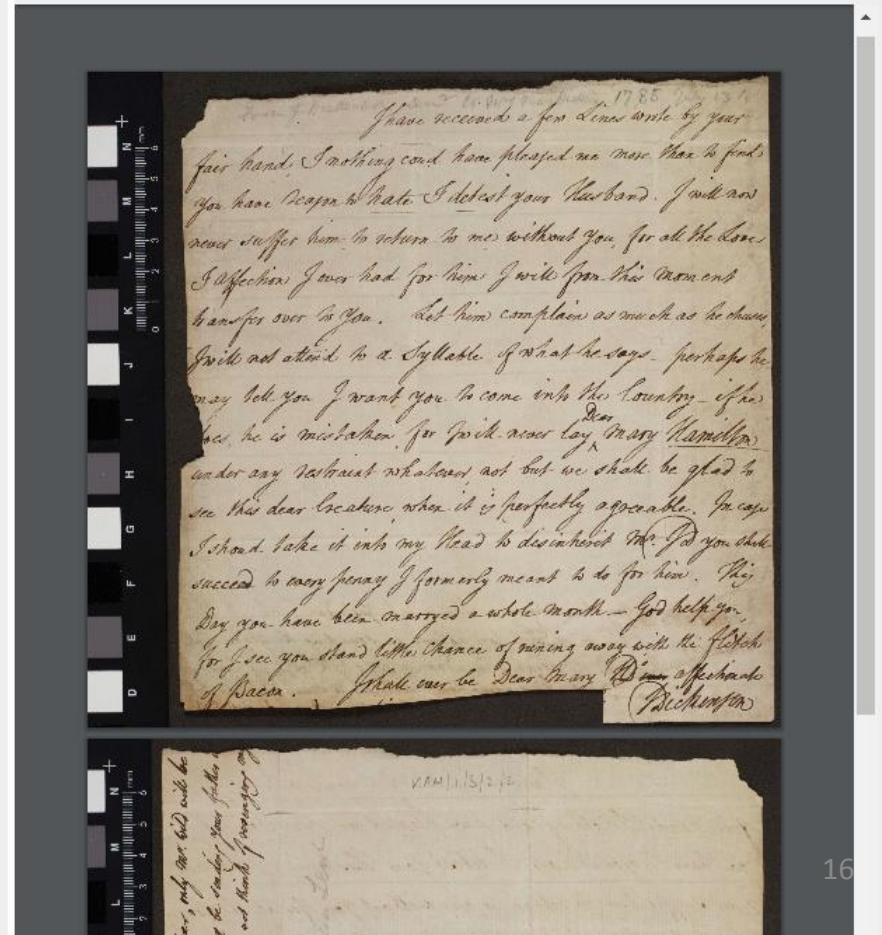 1785 July 13th
I have received a few Lines wrote by your
fair hand, & nothing coud have pleased me more than to find
you have reason to hate & detest your Husband. I will now
never suffer him to return to me without you, for all the Love
& affection I ever had for him I will from this moment
transfer over to you. Let him complain as much as he chuses,
I will not attend to a Syllable of what he says - perhaps he
may tell you I want you to come into the Country - if he
does, he is mistaken, for I will never lay
Dear
^ Mary Hamilton
under any restraint whatever, not but we shall be glad to
see this dear Creature when it is perfectly agreeable. In case
I should take it into my Head to disinherit Mr. JD you shall
succeed to every penny I formerly meant to do for him. This
Day you have been marryed a whole month - God help you
for I see you stand little chance of runing away with the flitch
of Bacon. I shall ever be Dear Mary affectionate
Dickenson
VAN/1/3/2/2
only Mr. Wild will be
be sending your father
not think of
16
N
M
L
K
J
I
H
G
F
E
D
mm
6
5
4
3
2
1
0
N
M
L
mm
6
5
4
3
2